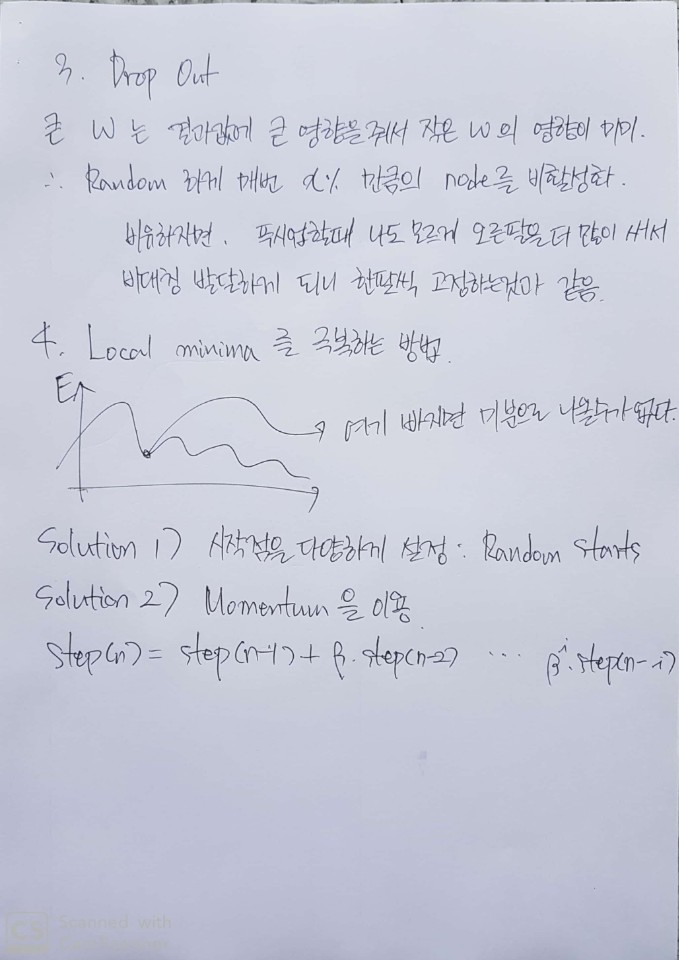 3. Drop Out
큰 W 는 결과값에 큰 영향을 줘서 작은 W 의 영향이 미미.
∴ Random 하게 매번 x% 만큼의 node를 비활성화.
비유하자면. 푸시업할때 나도 모르게 오른팔을 더 많이 써서
비대칭 발달하게 되니 한팔씩 고정하는것과 같음.
4. Local minima 를 극복하는 방법.
E
여기 빠지면 미분으로 나올수가 없다.
Solution 1) 시작점을 다양하게 설정 : Random Starts
Solution 2) Momentum 을 이용.
Step(n) = step(n-1) + β. step(n-2) ... βⁱ. step(n-i)
CS Scanned with